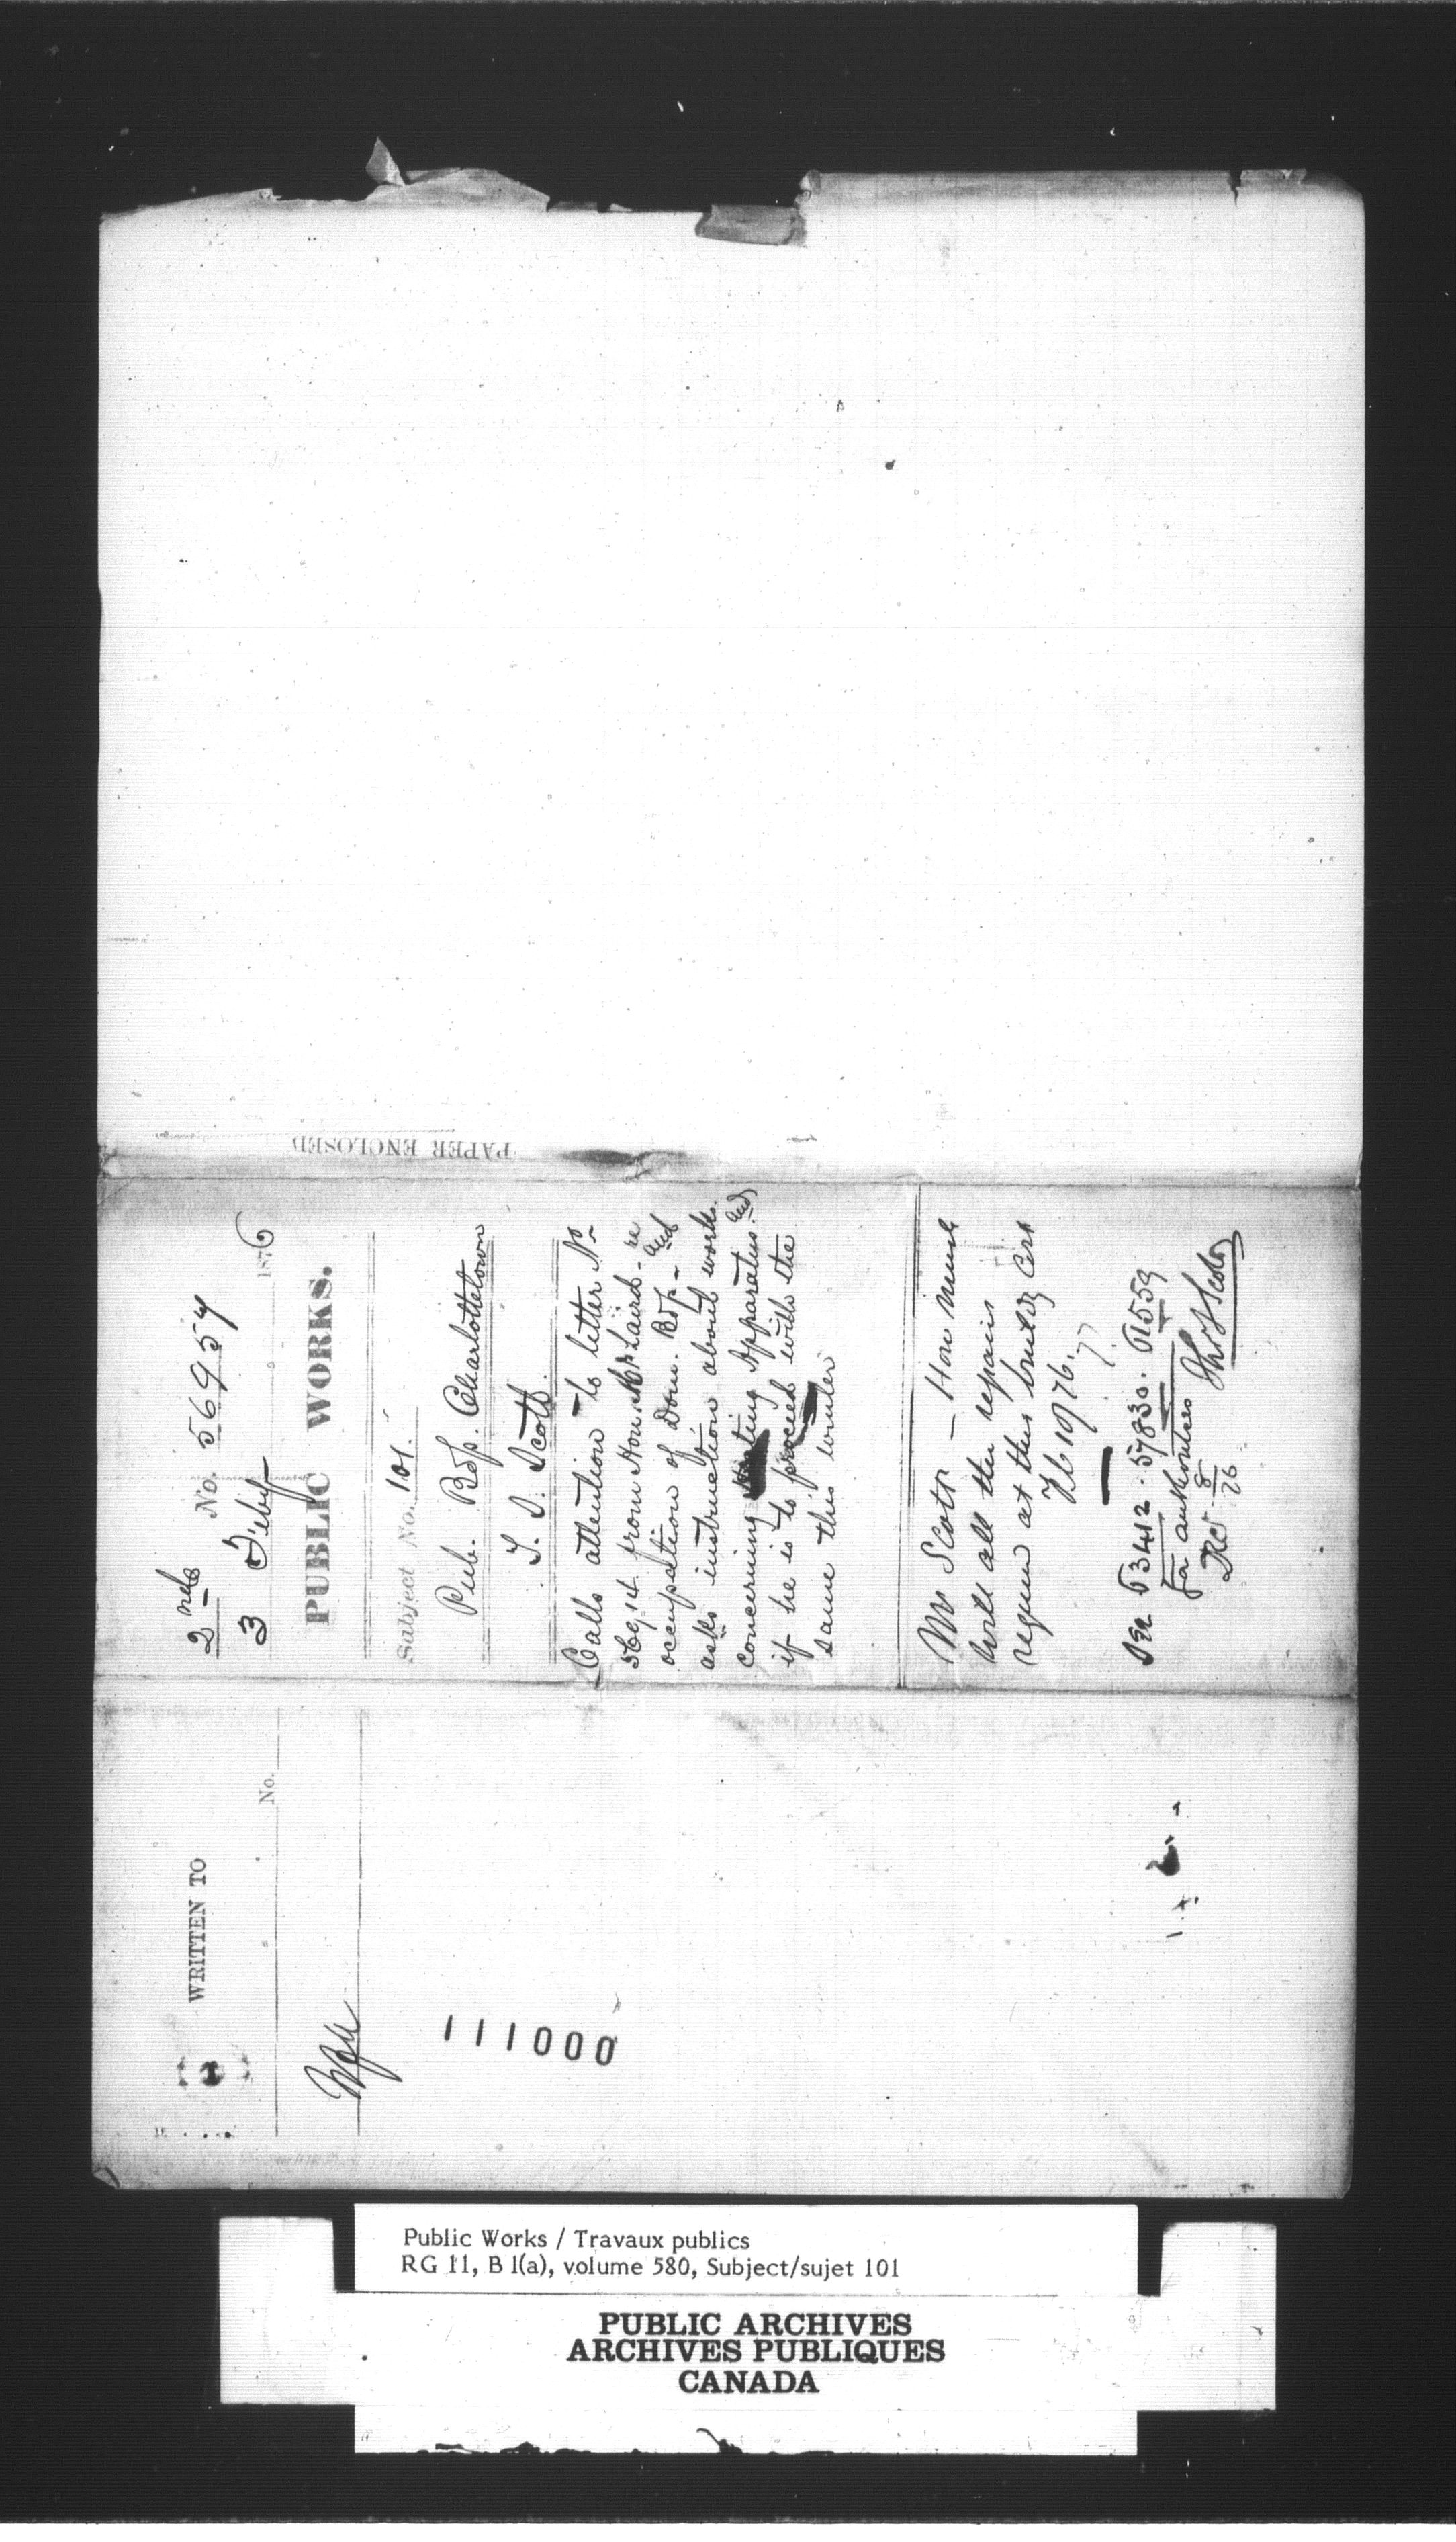 2nds No. 56954
3 Feby 1876
PUBLIC WORKS.
Subject No. 101.
Pub. Bdgs. Charlottetown
T. S. Scott.
Calls attention to letter No
56914 from Hon Mr Laird - re
occupation of Dom. Bdgs - and
asks instruction about work
concerning Heating Apparatus. and
if he is to proceed with the
same this winter
Mr Scott - How much
will all the repairs
require at this buildg Cost
Fb 10/76.
See 63412. 57830. 61559
for authorities
Dec 8/76 Thos S Scott
PAPER ENCLOSED
WRITTEN TO
No.
111000
Public Works / Travaux publics
RG 11, B 1(a), volume 580, Subject/sujet 101
PUBLIC ARCHIVES
ARCHIVES PUBLIQUES
CANADA